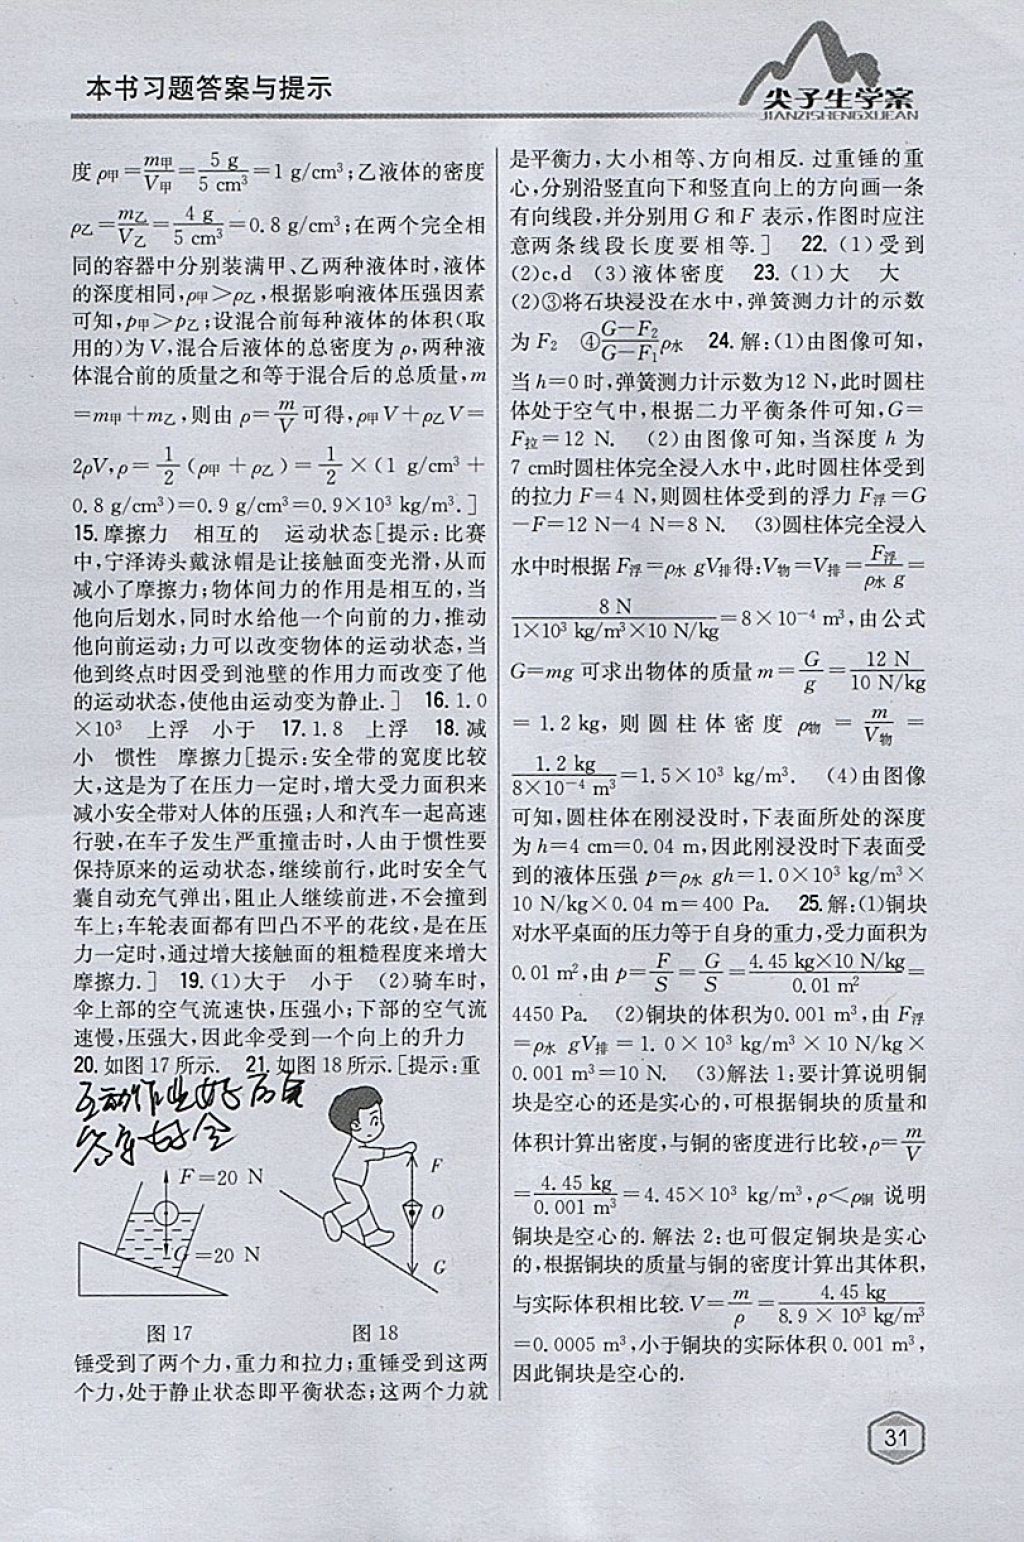 本书习题答案与提示
尖子生学案
JIANZISHENGXUEAN
度 ρ甲=m甲/V甲=5 g/5 cm³=1 g/cm³;乙液体的密度
ρ乙=m乙/V乙=4 g/5 cm³=0.8 g/cm³;在两个完全相
同的容器中分别装满甲、乙两种液体时,液体
的深度相同,ρ甲>ρ乙,根据影响液体压强因素
可知,p甲>p乙;设混合前每种液体的体积(取
用的)为V,混合后液体的总密度为ρ,两种液
体混合前的质量之和等于混合后的总质量,m
=m甲+m乙,则由 ρ=m/V可得,ρ甲V+ρ乙V=
2ρV,ρ=1/2(ρ甲+ρ乙)=1/2×(1 g/cm³+
0.8 g/cm³)=0.9 g/cm³=0.9×10³ kg/m³.]
15.摩擦力 相互的 运动状态[提示:比赛
中,宁泽涛头戴泳帽是让接触面变光滑,从而
减小了摩擦力;物体间力的作用是相互的,当
他向后划水,同时水给他一个向前的力,推动
他向前运动;力可以改变物体的运动状态,当
他到终点时因受到池壁的作用力而改变了他
的运动状态,使他由运动变为静止.] 16.1.0
×10³ 上浮 小于 17.1.8 上浮 18.减
小 惯性 摩擦力[提示:安全带的宽度比较
大,这是为了在压力一定时,增大受力面积来
减小安全带对人体的压强;人和汽车一起高速
行驶,在车子发生严重撞击时,人由于惯性要
保持原来的运动状态,继续前行,此时安全气
囊自动充气弹出,阻止人继续前进,不会撞到
车上;车轮表面都有凹凸不平的花纹,是在压
力一定时,通过增大接触面的粗糙程度来增大
摩擦力.] 19.(1)大于 小于 (2)骑车时,
伞上部的空气流速快,压强小;下部的空气流
速慢,压强大,因此伞受到一个向上的升力
20.如图17所示. 21.如图18所示.[提示:重
互动作业好
F=20 N
G=20 N
图17
F
O
G
图18
锤受到了两个力,重力和拉力;重锤受到这两
个力,处于静止状态即平衡状态;这两个力就
是平衡力,大小相等、方向相反.过重锤的重
心,分别沿竖直向下和竖直向上的方向画一条
有向线段,并分别用G和F表示,作图时应注
意两条线段长度要相等.] 22.(1)受到
(2)c,d (3)液体密度 23.(1)大 大
(2)③将石块浸没在水中,弹簧测力计的示数
为F₂ ④(G-F₂)/(G-F₁)ρ水 24.解:(1)由图像可知,
当h=0时,弹簧测力计示数为12 N,此时圆柱
体处于空气中,根据二力平衡条件可知,G=
F拉=12 N. (2)由图像可知,当深度h为
7 cm时圆柱体完全浸入水中,此时圆柱体受到
的拉力F=4 N,则圆柱体受到的浮力F浮=G
-F=12 N-4 N=8 N. (3)圆柱体完全浸入
水中时根据F浮=ρ水gV排得:V物=V排=F浮/ρ水g=
8 N/(1×10³ kg/m³×10 N/kg)=8×10⁻⁴ m³,由公式
G=mg可求出物体的质量m=G/g=12 N/10 N/kg
=1.2 kg,则圆柱体密度 ρ物=m/V物=
1.2 kg/8×10⁻⁴ m³=1.5×10³ kg/m³. (4)由图像
可知,圆柱体在刚浸没时,下表面所处的深度
为h=4 cm=0.04 m,因此刚浸没时下表面受
到的液体压强p=ρ水gh=1.0×10³ kg/m³×
10 N/kg×0.04 m=400 Pa. 25.解:(1)铜块
对水平桌面的压力等于自身的重力,受力面积为
0.01 m²,由p=F/S=G/S=4.45 kg×10 N/kg/0.01 m²=
4450 Pa. (2)铜块的体积为0.001 m³,由F浮
=ρ水gV排=1.0×10³ kg/m³×10 N/kg×
0.001 m³=10 N. (3)解法1:要计算说明铜
块是空心的还是实心的,可根据铜块的质量和
体积计算出密度,与铜的密度进行比较,ρ=m/V
=4.45 kg/0.001 m³=4.45×10³ kg/m³,ρ<ρ铜 说明
铜块是空心的.解法2:也可假定铜块是实心
的,根据铜块的质量与铜的密度计算出其体积,
与实际体积相比较.V=m/ρ=4.45 kg/8.9×10³ kg/m³
=0.0005 m³,小于铜块的实际体积0.001 m³,
因此铜块是空心的.
31